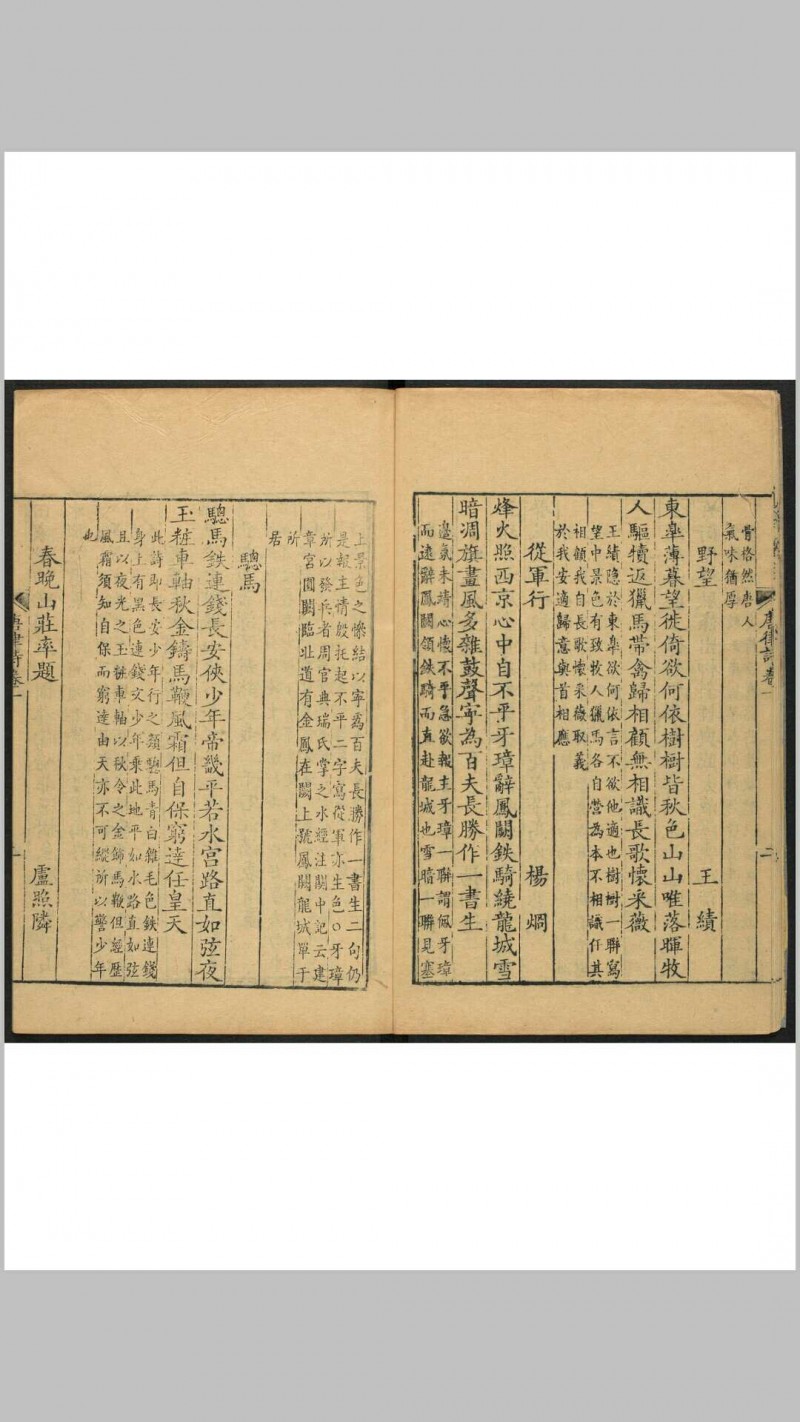 唐律詩卷一
二
骨格然唐人
氣味猶厚
野望 王績
東臯薄暮望徙倚欲何依樹樹皆秋色山山唯落暉牧
人驅犢返獵馬帶禽歸相顧無相識長歌懷采薇
王績隱於東臯欲何依言不欲他適也樹樹一聯寫
望中景色有致牧人獵馬各自營為本不相識任其
相顧我自長歌懷采薇取義
於我安適歸意與首相應
從軍行 楊烱
烽火照西京心中自不平牙璋辭鳳闕鉄騎繞龍城雪
暗凋旗畫風多雜鼓聲寧為百夫長勝作一書生
邊氛未靖心懷不平急欲報主牙璋一聯謂佩牙璋
而遠辭鳳闕領鉄騎而直赴龍城也雪暗一聯見塞
上景色之慘結以寧為百夫長勝作一書生二句仍
是報主情殷托起不平二字寫從軍亦生色○牙璋
所以發兵者周官典瑞氏掌之水經注關中記云建
章宮圓闕臨北道有金鳳在闕上號鳳闕龍城單于
所
居
驄馬
驄馬鉄連錢長安俠少年帝畿平若水宮路直如弦夜
玉粧車軸秋金鑄馬鞭風霜但自保窮達任皇天
此詩即長安少年行之類驄馬青白雜毛色鉄連錢
身上有黑色連錢文少年乘此地平如水路直如弦
且以夜光之玉粧車軸以秋令之金飾馬鞭但經歷
風霜須知自保而窮達由天亦不可縱所以警少年
也
春晚山莊率題 盧照隣
唐律詩卷一